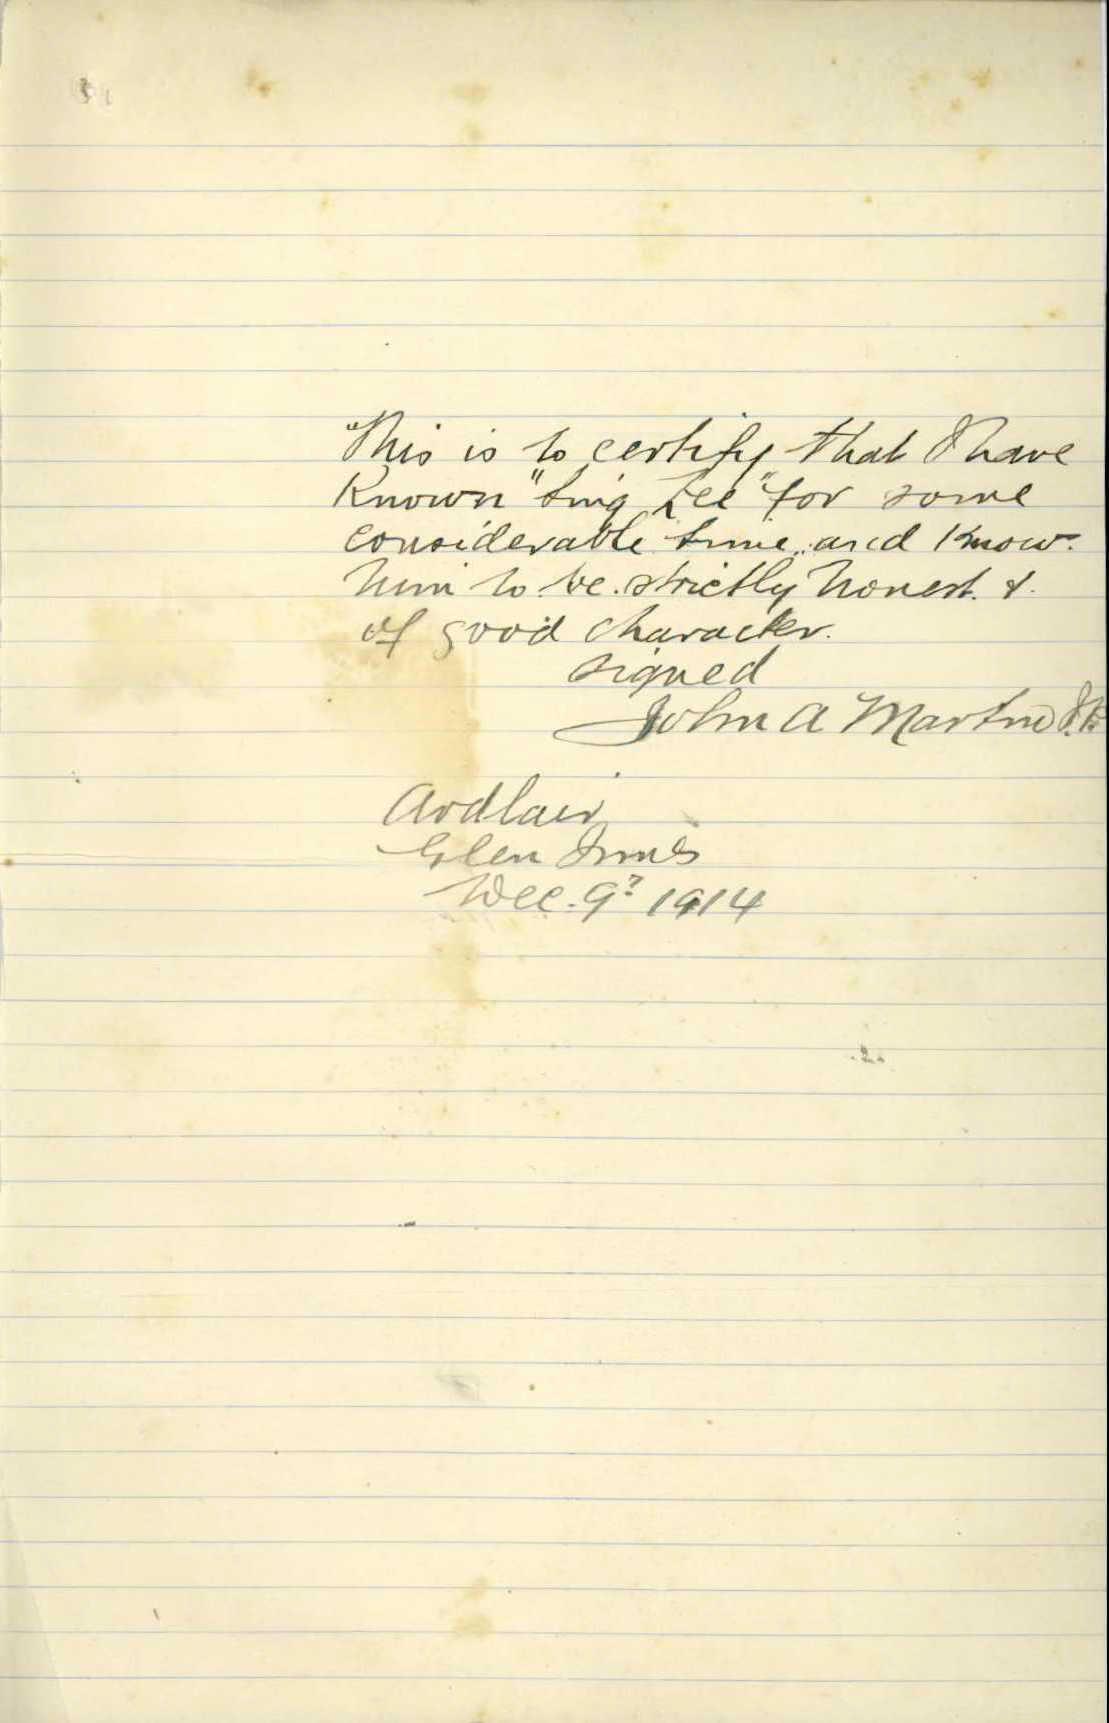 This is to certify that I have
Known "Sing Lee" for some
considerable time and Know
him to be strictly honest &
of good character.
signed
John A Martin J.P.
Ardlair
Glen Innes
Dec. 9th 1914